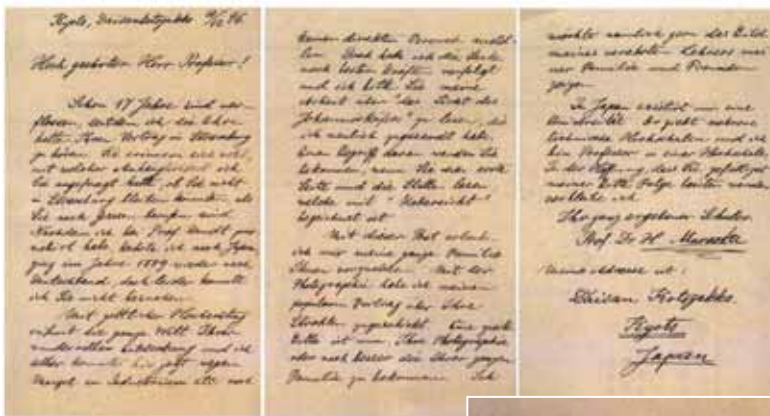 Kyoto, 96.
Hoch geehrter Herr Professor!
Schon 17 Jahre sind ver-
flossen, seitdem ich die Ehre
hatte Ihren Vortrag in Strassburg
zu hören. Sie erinnern sich wohl,
mit welcher ich
Sie angefragt hatte, ob Sie nicht
in Strassburg bleiben könnten, als
Sie nach berufen sind.
Nachdem ich bei Prof Kundt pro-
movirt habe kehrte ich nach Japan,
ging im Jahre 1889 wieder nach
Deutschland, doch leider konnte
ich Sie nicht besuchen.
Mit göttlicher Hochachtung
nimmt die ganze Welt Ihre
und ich
selber konnte bis jetzt wegen
Mangel an Inductorium etc. noch
keinen direkten Versuch anstel-
len. Doch habe ich die Sache
nach besten Kräften verfolgt
und ich bitte Sie meine
Arbeit über "das Licht des
Johanniskäfers" zu lesen, die
ich neulich zugesandt habe.
Einen Begriff davon werden Sie
bekommen, wenn Sie die erste
Seite und die Stellen lesen
welche mit "Uebersicht"
bezeichnet ist.
Mit dieser Post erlaube
ich mir meine ganze Familie
Ihnen vorzustellen. Mit der
Photographie habe ich meinen
populären Vortrag über Ihre
Strahlen zugeschickt. Eine grosse
Bitte ist nun, Ihre Photographie
oder noch besser die Ihrer ganzen
Familie zu bekommen. Ich
möchte nämlich gern das Bild
meines verehrten Lehrers mei-
ner Familie und Freunden
zeigen.
In Japan existirt nur eine
Universität. Es giebt mehrere
technische Hochschulen und ich
bin Professor in einer Hochschule.
In der Hoffnung, dass Sie gefälligst
meiner Bitte Folge leisten werden
verbleibe ich
Ihr ganz ergebener Schüler
Prof. Dr. H. Muraoka
Meine Adresse ist:
Daisan Kotogakko
Kyoto
Japan